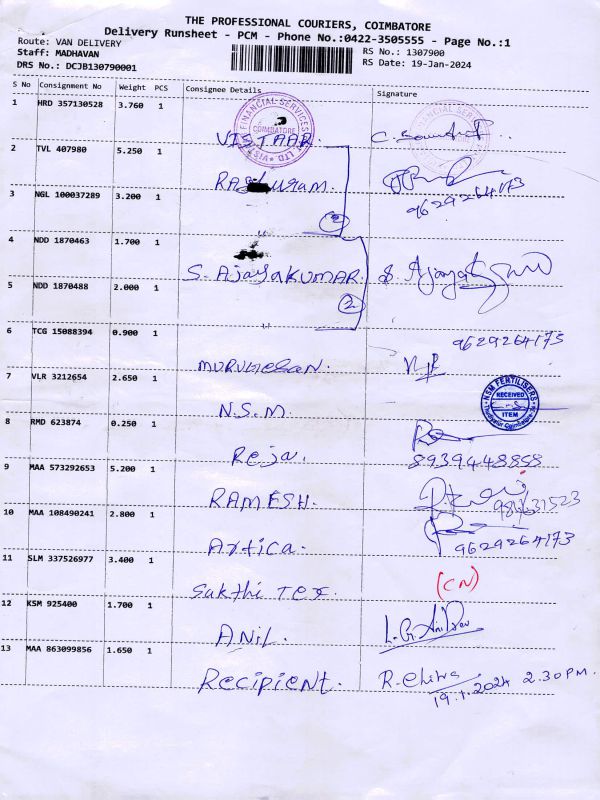 THE PROFESSIONAL COURIERS, COIMBATORE
Delivery Runsheet - PCM - Phone No.:0422-3505555 - Page No.:1
Route: VAN DELIVERY
Staff: MADHAVAN
DRS No.: DCJB130790001
RS No.: 1307900
RS Date: 19-Jan-2024
S No Consignment No Weight PCS Consignee Details Signature
1 HRD 357130528 3.760 1 VISTAAR
FINANCIAL SERVICES COIMBATORE
2 TVL 407980 5.250 1 Raghuram
9629264173
3 NGL 100037289 3.200 1
2
4 NDD 1870463 1.700 1 S. AjayaKUMAR
5 NDD 1870488 2.000 1
2
6 TCG 15088394 0.900 1 MURUGESAN.
9629264173
7 VLR 3212654 2.650 1 N.S.M.
NSM FERTILISERS RECEIVED ITEM
8 RMD 623874 0.250 1 Reja.
8939448858
9 MAA 573292653 5.200 1 RAMESH.
10 MAA 108490241 2.800 1 Artica.
9629264173
11 SLM 337526977 3.400 1 Sakthi Tex. (CN)
12 KSM 925400 1.700 1 ANIL.
13 MAA 863099856 1.650 1 Recipient. R. Chitra
19.1.2024 2.30PM.